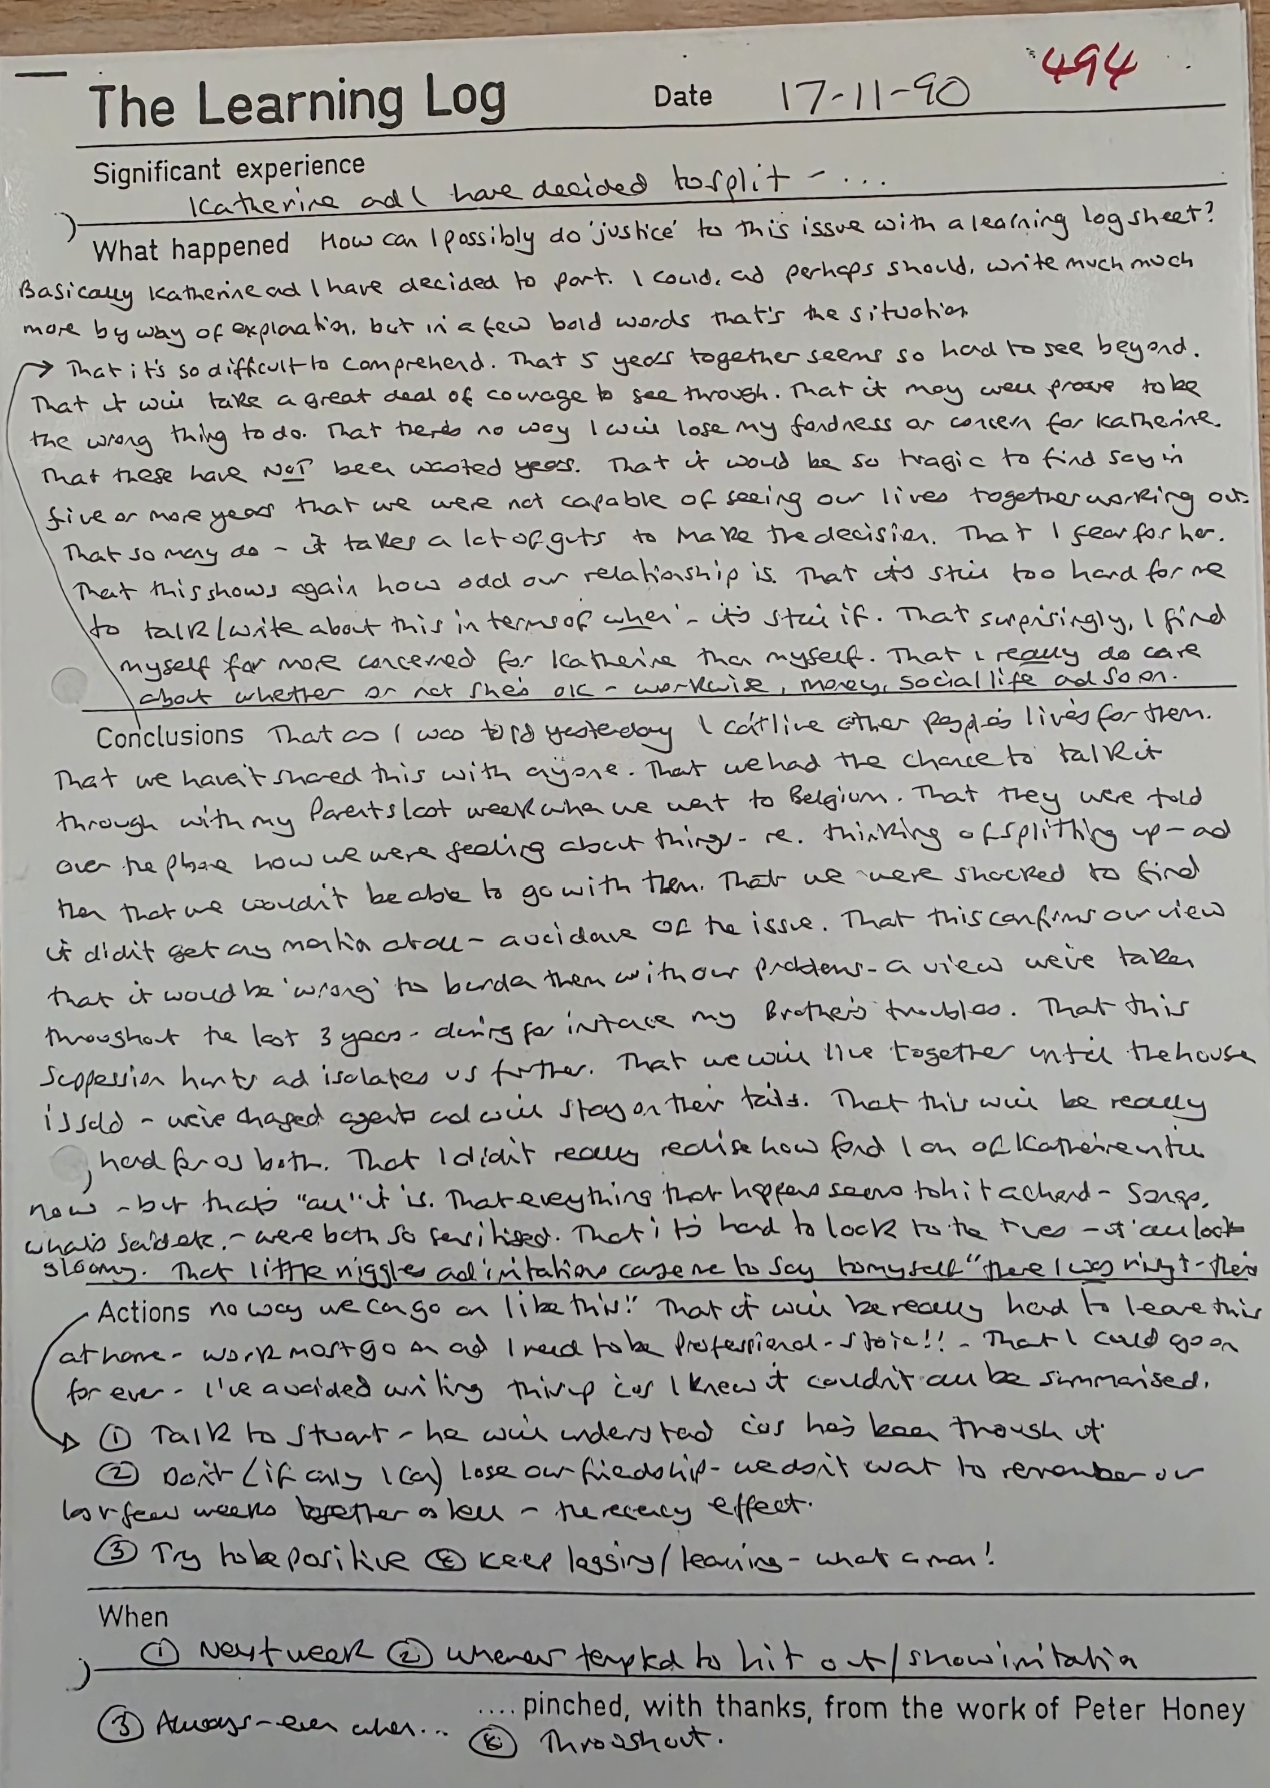 The Learning Log Date 17-11-90 494
Significant experience
Katherine ad I have decided to split - ...
What happened How can I possibly do 'justice' to this issue with a learning log sheet?
Basically Katherine ad I have decided to part. I could, ad perhaps should, write much much
more by way of explanation, but in a few bold words that's the situation
→ That it's so difficult to comprehend. That 5 years together seems so hard to see beyond.
That it will take a great deal of courage to see through. That it may well prove to be
the wrong thing to do. That there's no way I will lose my fondness or concern for Katherine.
That these have NOT been wasted years. That it would be so tragic to find say in
five or more years that we were not capable of seeing our lives together working out.
That so many do - it takes a lot of guts to make the decision. That I fear for her.
That this shows again how odd our relationship is. That it's still too hard for me
to talk/write about this in terms of when' - it's still if. That surprisingly, I find
myself far more concerned for Katherine than myself. That I really do care
about whether or not she's ok - workwise, money, social life ad so on.
Conclusions That as I was told yesterday I can't live other people's lives for them.
That we haven't shared this with anyone. That we had the chance to talk it
through with my Parents last week when we went to Belgium. That they were told
over the phone how we were feeling about things - re. thinking of splitting up - ad
then that we wouldn't be able to go with them. That we were shocked to find
it didn't get any mention at all - avoidance of the issue. That this confirms our view
that it would be 'wrong' to burden them with our problems - a view we've taken
throughout the last 3 years - during for instance my Brother's troubles. That this
suppession hurts ad isolates us further. That we will live together until the house
is sold - we've changed agents ad will stay on their tails. That this will be really
hard for us both. That I didn't really realise how fond I am of Katherine until
now - but that's "all" it is. That everything that happens seems to hit a chord - songs,
what's said etc. - were both so sensitised. That it's hard to look to the - it all looks
gloomy. That little niggles ad irritations cause me to say to myself "there I was right - theirs
Actions no way we can go on like this!" That it will be really hard to leave this
at home - work must go on ad I need to be professional - stoic!! - That I could go on
for ever - I've avoided writing this up 'cos I knew it couldn't all be summarised.
① Talk to Stuart - he will understand 'cos he's been through it
② Don't (if only I can) lose our friendship - we don't want to remember our
last few weeks together as hell - the recency effect.
③ Try to be positive ④ Keep logging/learning - what a man!
When
① Next week ② Whenever tempted to hit out/show irritation
③ Always - even when... .... pinched, with thanks, from the work of Peter Honey
④ Throughout.